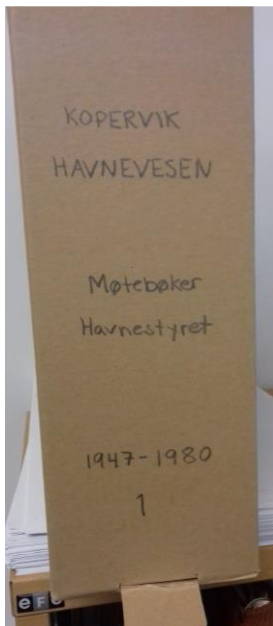 KOPERVIK
HAVNEVESEN
Møtebøker
Havnestyret
1947-1980
1